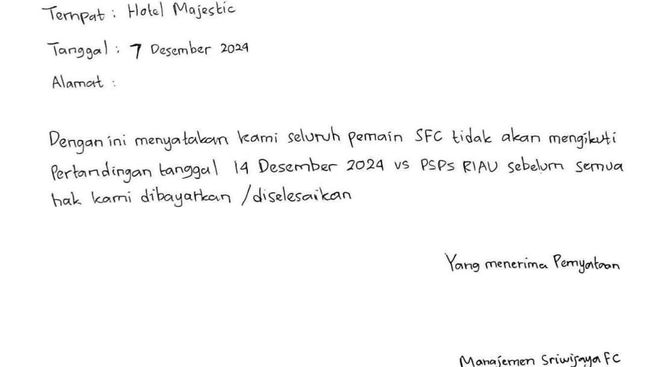 Tempat : Hotel Majestic
Tanggal : 7 Desember 2024
Alamat :
Dengan ini menyatakan kami seluruh pemain SFC tidak akan mengikuti
Pertandingan tanggal 14 Desember 2024 vs PSPS RIAU sebelum semua
hak kami dibayarkan /diselesaikan
Yang menerima Pernyataan
Manajemen Sriwijaya FC